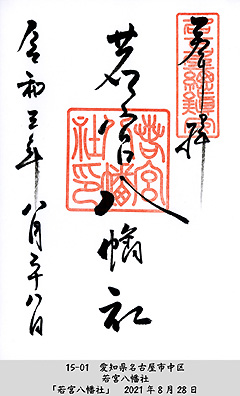 奉拝
名古屋総鎮守
若宮八幡社
若宮八幡社印
令和三年八月二十八日
15-01 愛知県名古屋市中区
若宮八幡社
「若宮八幡社」 2021年8月28日